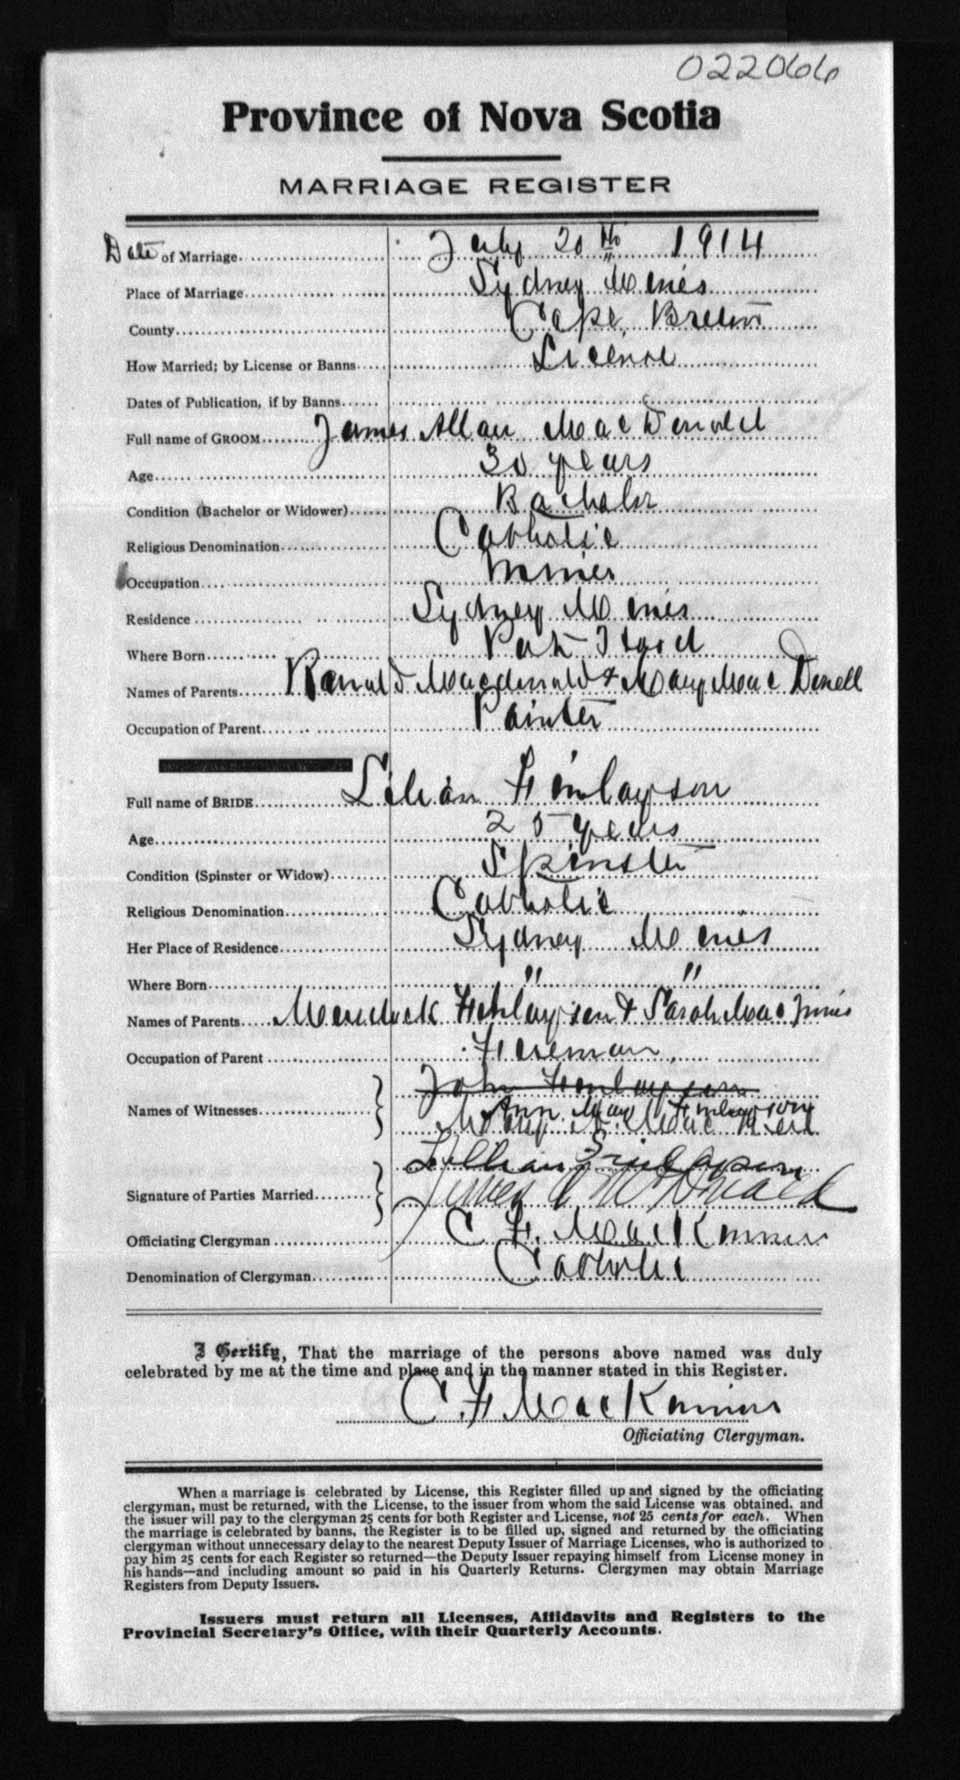 022066
Province of Nova Scotia
MARRIAGE REGISTER
Date of Marriage July 20th 1914
Place of Marriage Sydney Mines
County Cape Breton
How Married; by License or Banns License
Dates of Publication, if by Banns
Full name of GROOM James Allan MacDonald
Age 30 years
Condition (Bachelor or Widower) Bachelor
Religious Denomination Catholic
Occupation Miner
Residence Sydney Mines
Where Born Port Hood
Names of Parents Ranald Macdonald & Mary Mac Donell
Occupation of Parent Painter
Full name of BRIDE Lilian Finlayson
Age 25 years
Condition (Spinster or Widow) Spinster
Religious Denomination Catholic
Her Place of Residence Sydney Mines
Where Born " "
Names of Parents Murdock Finlayson & Sarah MacInnis
Occupation of Parent Foreman
John Finlayson
Names of Witnesses Ann May Finlayson
Mary A. Mac Neil
Lillian Finlayson
Signature of Parties Married James A McDonald
Officiating Clergyman C. F. MacKinnon
Denomination of Clergyman Catholic
I Certify, That the marriage of the persons above named was duly
celebrated by me at the time and place and in the manner stated in this Register.
C. F. MacKinnon
Officiating Clergyman.
When a marriage is celebrated by License, this Register filled up and signed by the officiating
clergyman, must be returned, with the License, to the issuer from whom the said License was obtained, and
the issuer will pay to the clergyman 25 cents for both Register and License, not 25 cents for each. When
the marriage is celebrated by banns, the Register is to be filled up, signed and returned by the officiating
clergyman without unnecessary delay to the nearest Deputy Issuer of Marriage Licenses, who is authorized to
pay him 25 cents for each Register so returned—the Deputy Issuer repaying himself from License money in
his hands—and including amount so paid in his Quarterly Returns. Clergymen may obtain Marriage
Registers from Deputy Issuers.
Issuers must return all Licenses, Affidavits and Registers to the
Provincial Secretary's Office, with their Quarterly Accounts.